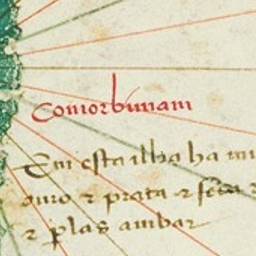 comorbinam
Em esta ilha ha mu
ouro & prata & seda &
& perlas ambar